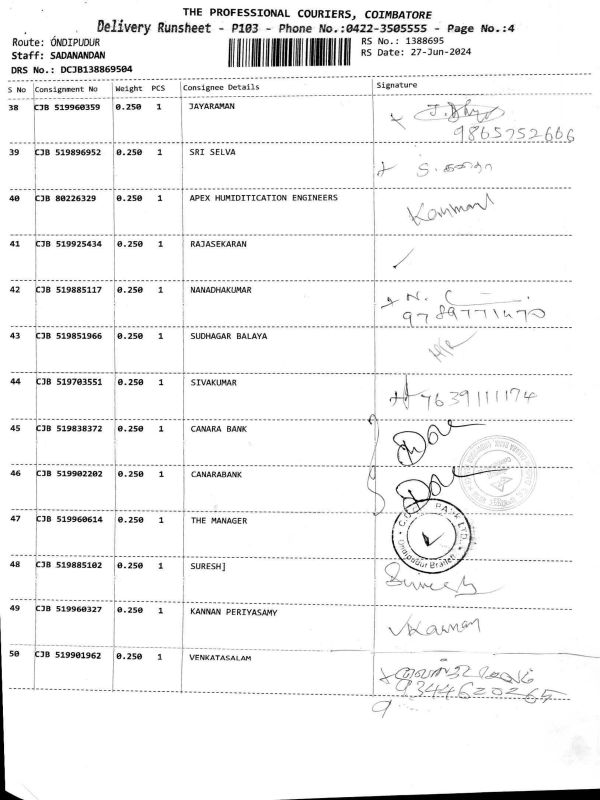 THE PROFESSIONAL COURIERS, COIMBATORE
Delivery Runsheet - P103 - Phone No.:0422-3505555 - Page No.:4
Route: ONDIPUDUR RS No.: 1388695
Staff: SADANANDAN RS Date: 27-Jun-2024
DRS No.: DCJB138869504
S No Consignment No Weight PCS Consignee Details Signature
38 CJB 519960359 0.250 1 JAYARAMAN
9865752666
39 CJB 519896952 0.250 1 SRI SELVA
40 CJB 80226329 0.250 1 APEX HUMIDITICATION ENGINEERS
41 CJB 519925434 0.250 1 RAJASEKARAN
42 CJB 519885117 0.250 1 NANADHAKUMAR
43 CJB 519851966 0.250 1 SUDHAGAR BALAYA
44 CJB 519703551 0.250 1 SIVAKUMAR 7639111174
45 CJB 519838372 0.250 1 CANARA BANK
46 CJB 519902202 0.250 1 CANARABANK
47 CJB 519960614 0.250 1 THE MANAGER
48 CJB 519885102 0.250 1 SURESH]
49 CJB 519960327 0.250 1 KANNAN PERIYASAMY Kannan
50 CJB 519901962 0.250 1 VENKATASALAM
9344620265
9